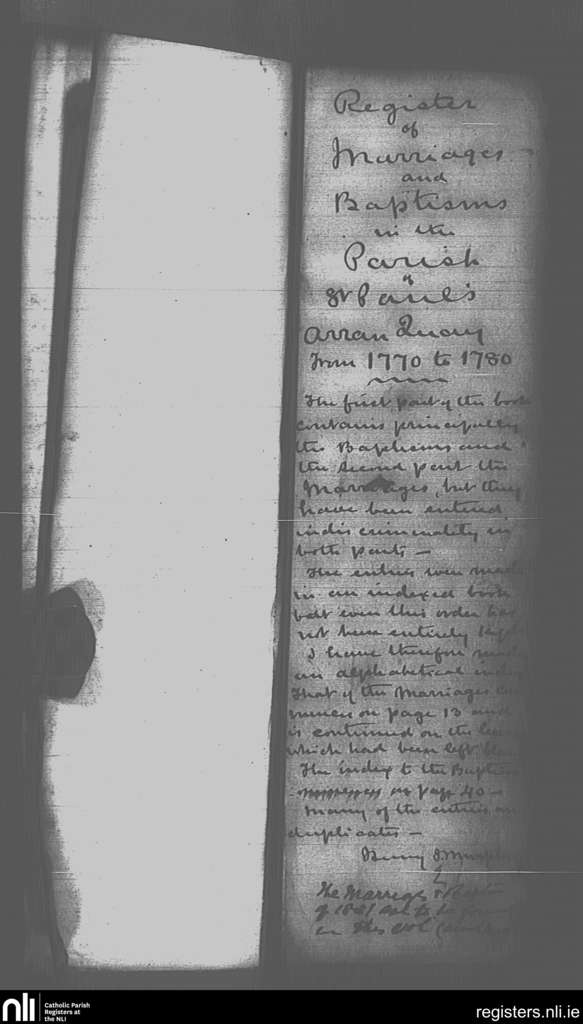 Register
of
Marriages
and
Baptisms
in the
Parish
of
St Paul's
Arran Quay
From 1770 to 1780
The first part of the book
contains principally
the Baptisms and
the second part the
Marriages, but they
have been entered
indiscriminately in
both parts —
The entries were made
in an indexed book
but even this order has
not been entirely kept
I have therefore made
an alphabetical index
That of the Marriages
on page 13 and
is continued on the leaves
which had been left
The index to the Baptisms
on page 40 —
Many of the entries are
duplicates —
The Marriages &
of to be found
in this vol
nli
Catholic Parish
Registers at
the NLI
registers.nli.ie